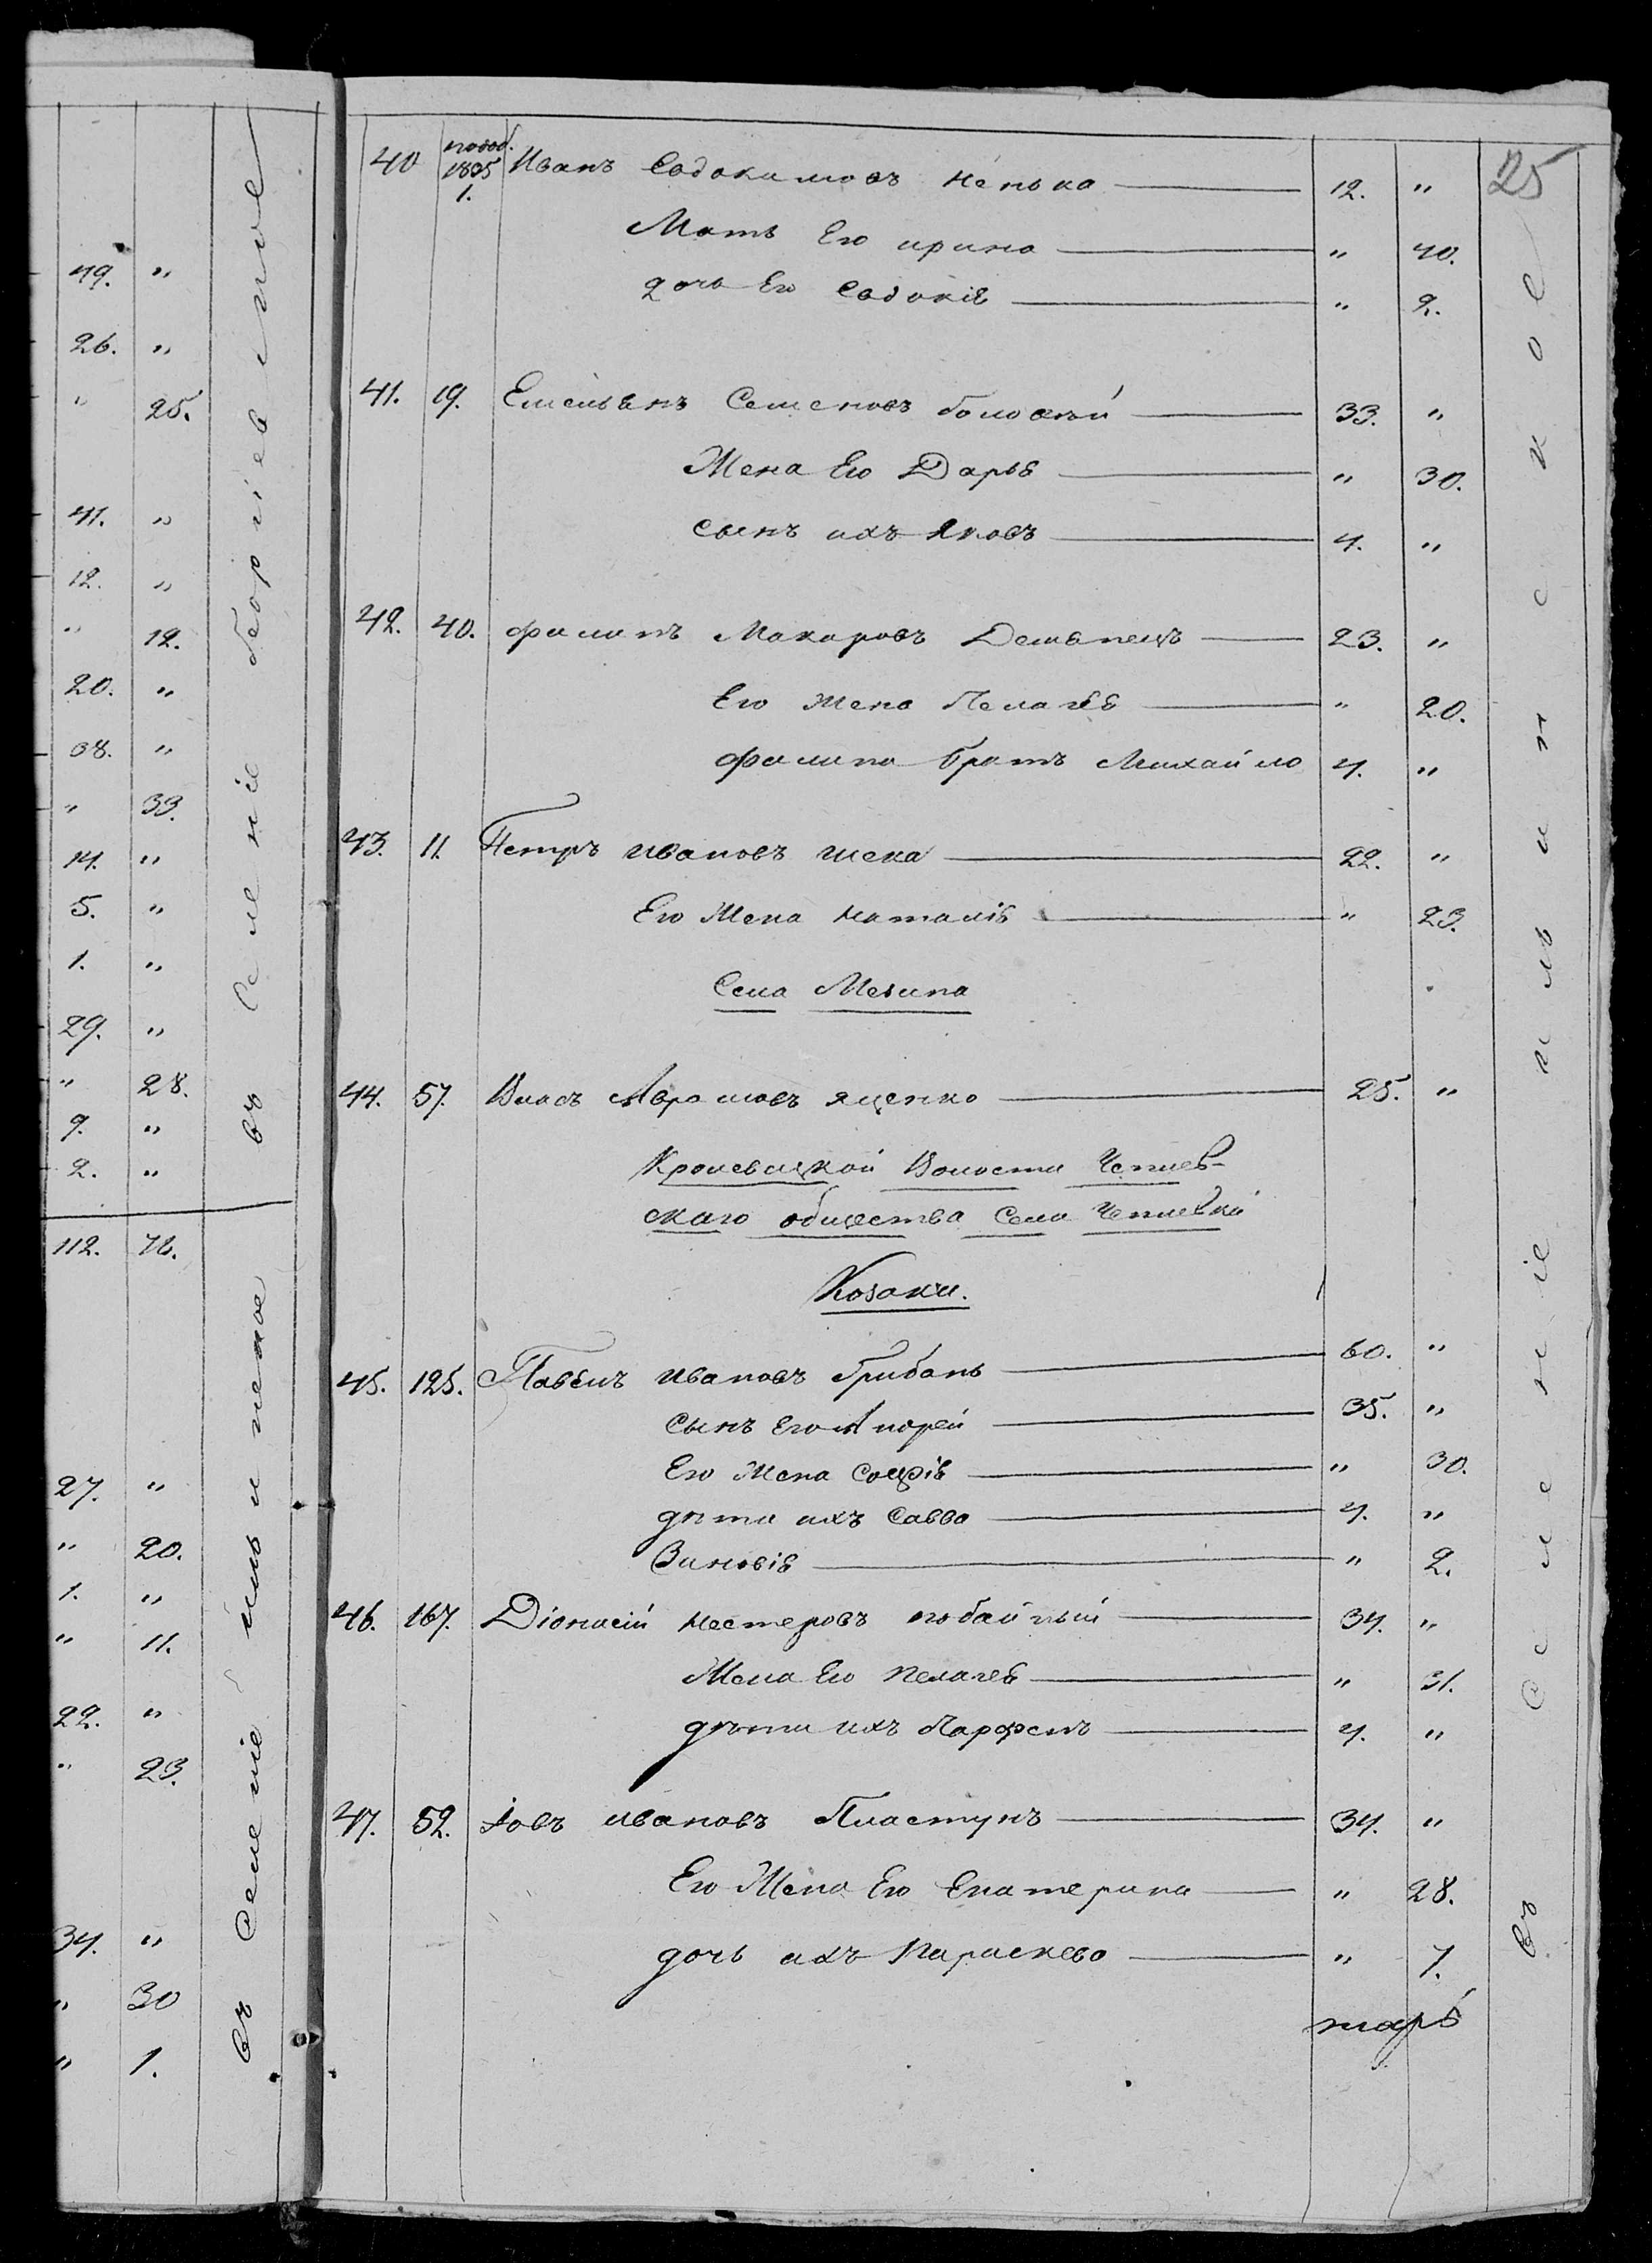 49. "
26. "
" 25.
41. "
12. "
" 12.
20. "
38. "
" 33.
14. "
5. "
1. "
29. "
" 28.
9. "
2. "
112.
27. "
" 20.
1. "
" 11.
22. "
" 23.
34. "
" 30
" 1.
въ Селеніе Георгіевское
въ Селеніе
25
40 1895 1. Иванъ Евдокимовъ Ненько 12. "
Мать Его ирина " 40.
дочь Его Евдокія " 2.
41. 19. Емельянъ Семеновъ 33. "
Жена Его Дарья " 30.
сынъ ихъ Яковъ 4. "
42. 40. филипъ Макаровъ Демянецъ 23. "
Его жена Пелагея " 20.
филипа братъ Михайло 4. "
43. 11. Петръ ивановъ шека 22. "
Его Жена наталія " 23.
Села Мезина
44. 57. Власъ Аврамовъ яценко 25. "
Кролевецкой Волости Чеплев-
скаго общества Села Чеплевки
Козаки.
45. 125. Павелъ ивановъ Грибань 60. "
сынъ Его Андрей 35. "
Его Жена софія " 30.
дѣти ихъ Савва 4. "
Зиновія " 2.
46. 167. Діонисій нестеровъ побайный 34. "
Жена Его пелагея " 31.
дѣти ихъ Парфенъ 4. "
47. 52. іовъ ивановъ Пластунъ 34. "
Его Жена Его Екатерина " 28.
дочь ихъ Параскева " 7.
въ Селеніе